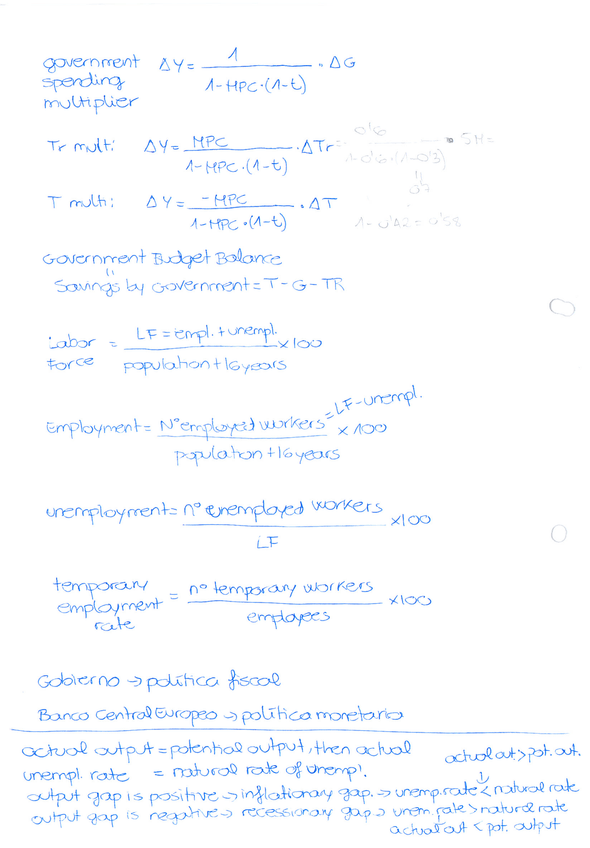 government spending multiplier ΔY = 1 / 1-MPC·(1-t) · ΔG
Tr multi: ΔY = MPC / 1-MPC·(1-t) · ΔTr = 0'6 / 1-0'6·(1-0'3) · SM=
0'7
T multi: ΔY = -MPC / 1-MPC·(1-t) · ΔT
1-0'42 = 0'58
Government Budget Balance
=
Savings by Government = T - G - TR
Labor Force = LF = empl. + unempl. / population +16 years x100
Employment = Nº employed workers = LF-unempl. / population +16 years x 100
unemployment = nº unemployed workers / LF x100
temporary employment rate = nº temporary workers / employees x100
Gobierno → política fiscal
Banco Central Europeo → política monetaria
actual output = potential output, then actual
unempl. rate = natural rate of unempl.
actual out. > pot. out.
output gap is positive → inflationary gap. → unemp. rate < natural rate
output gap is negative → recessionary gap → unem. rate > natural rate
actual out < pot. output